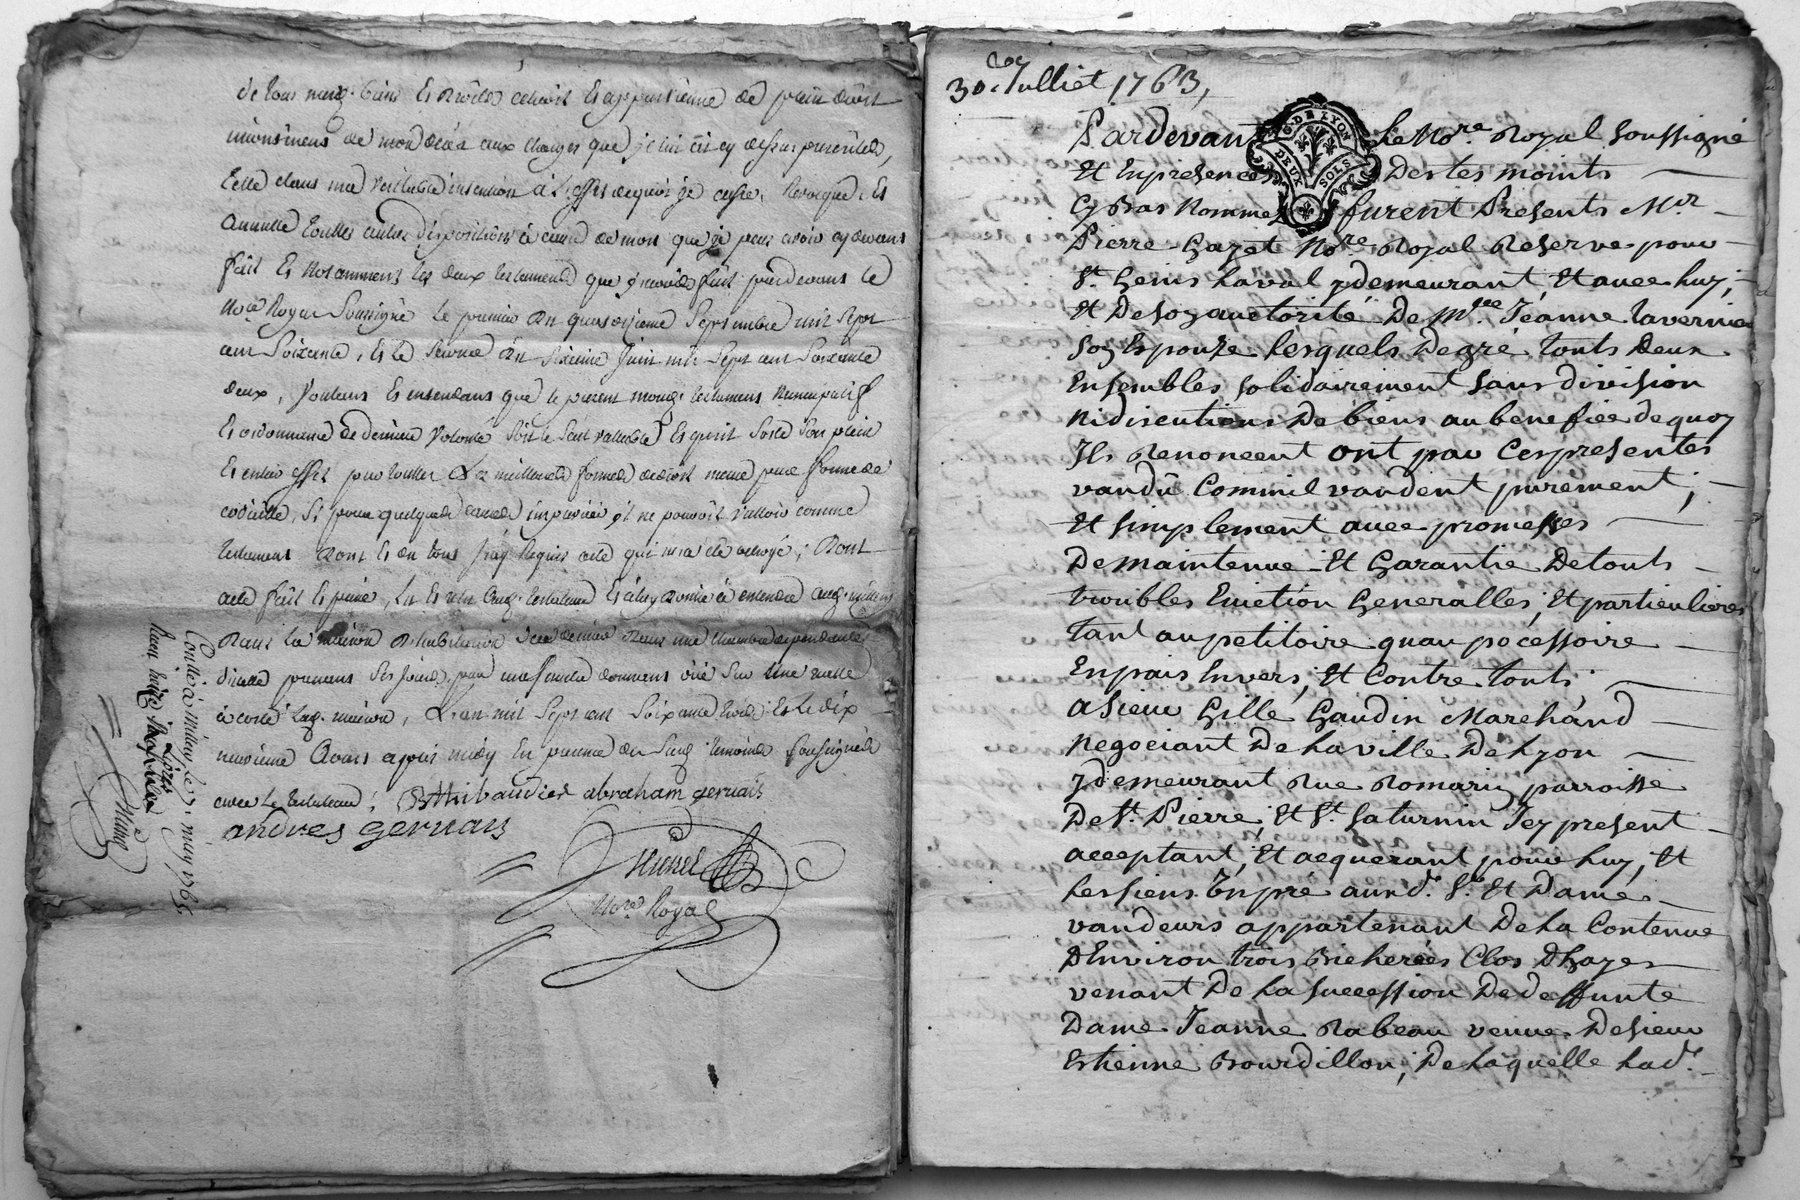 de tous mesd. biens et droits
de mon décès aux charges que je lui ai cy dessus prescrites,
telle étant ma véritable intention à l'effet de quoi je casse, revoque, et
annulle toutes autres dispositions à cause de mort que je peus avoir cy devant
fait et notamment les deux testaments que j'avois fait pardevant le
No.re Royal soussigné le premier du quatorzieme Septembre mil sept
cent soixante, et le second du sixieme Juin mil sept cent soixante
deux, voulant et entendant que le present mond. testament nuncupatif
et ordonnance de derniere volonté soit le seul vallable et qu'il sorte son plein
et entier effet pour toutes les meilleures formes de droit meme pour forme de
codicille, si pour quelques causes il ne pouvoit valloir comme
testament dont et du tout j'ay requis acte qui m'a été octroyé; Dont
acte fait et passé, lu et relu aud. testateur
dans la maison d'habitation
prenant ses jours par une fenetre donnant sur une ruelle
à costé lad. maison, L'an mil sept cent soixante trois et le dix
neuvieme avant après midy en presence des susd. temoins soussignés
avec le testateur; B Thibaudier abraham gervais
andres gervais
No.re Royal
Controllé à millery le 1. may 1765
30.e Julliet 1763,
G. DE LYON
DEUX SOLS
Pardevant Le No.re Royal Soussigné
Et En presences Des tes moints
Cy Bas Nommes furent Presents M.r
Pierre Gazet No.re Royal Reserve pour
S.t Genis Laval y demeurant Et avec luy,
Et De soy auctorité De M.gee Jéanne Tavernier
Soy Espouze Lesquels De gré touts Deux
Ensembles solidairement sans division
Ni discutions De biens au benefice de quoy
Ils Renoncent ont par Ces presentes
vandü Comm'il vandent purement,
Et simplement avec promesses
De maintenue Et Garantie De touts
troubles Eviction Generalles, Et particulieres
tant au petitoire quau pocessoire
En pais Envers, Et Contre touts
a Sieur Gille Gaudin Marchànd
Negociant De La ville De Lyon
y demeurant Rue Romariy parroisse
De S.t Pierre, Et S.t Saturnin Icy present
acceptant, Et acquerant pour luy, Et
Les siens Un pré aux d. S.r Et Dame
vandeurs appartenant De La Contenue
D'Environ trois Bicherées Clos D'hayes
venant De La succession De deffunte
Dame Jeanne Rabeau veuve De sieur
Estienne Bourdillon, De Laquelle Lad.e